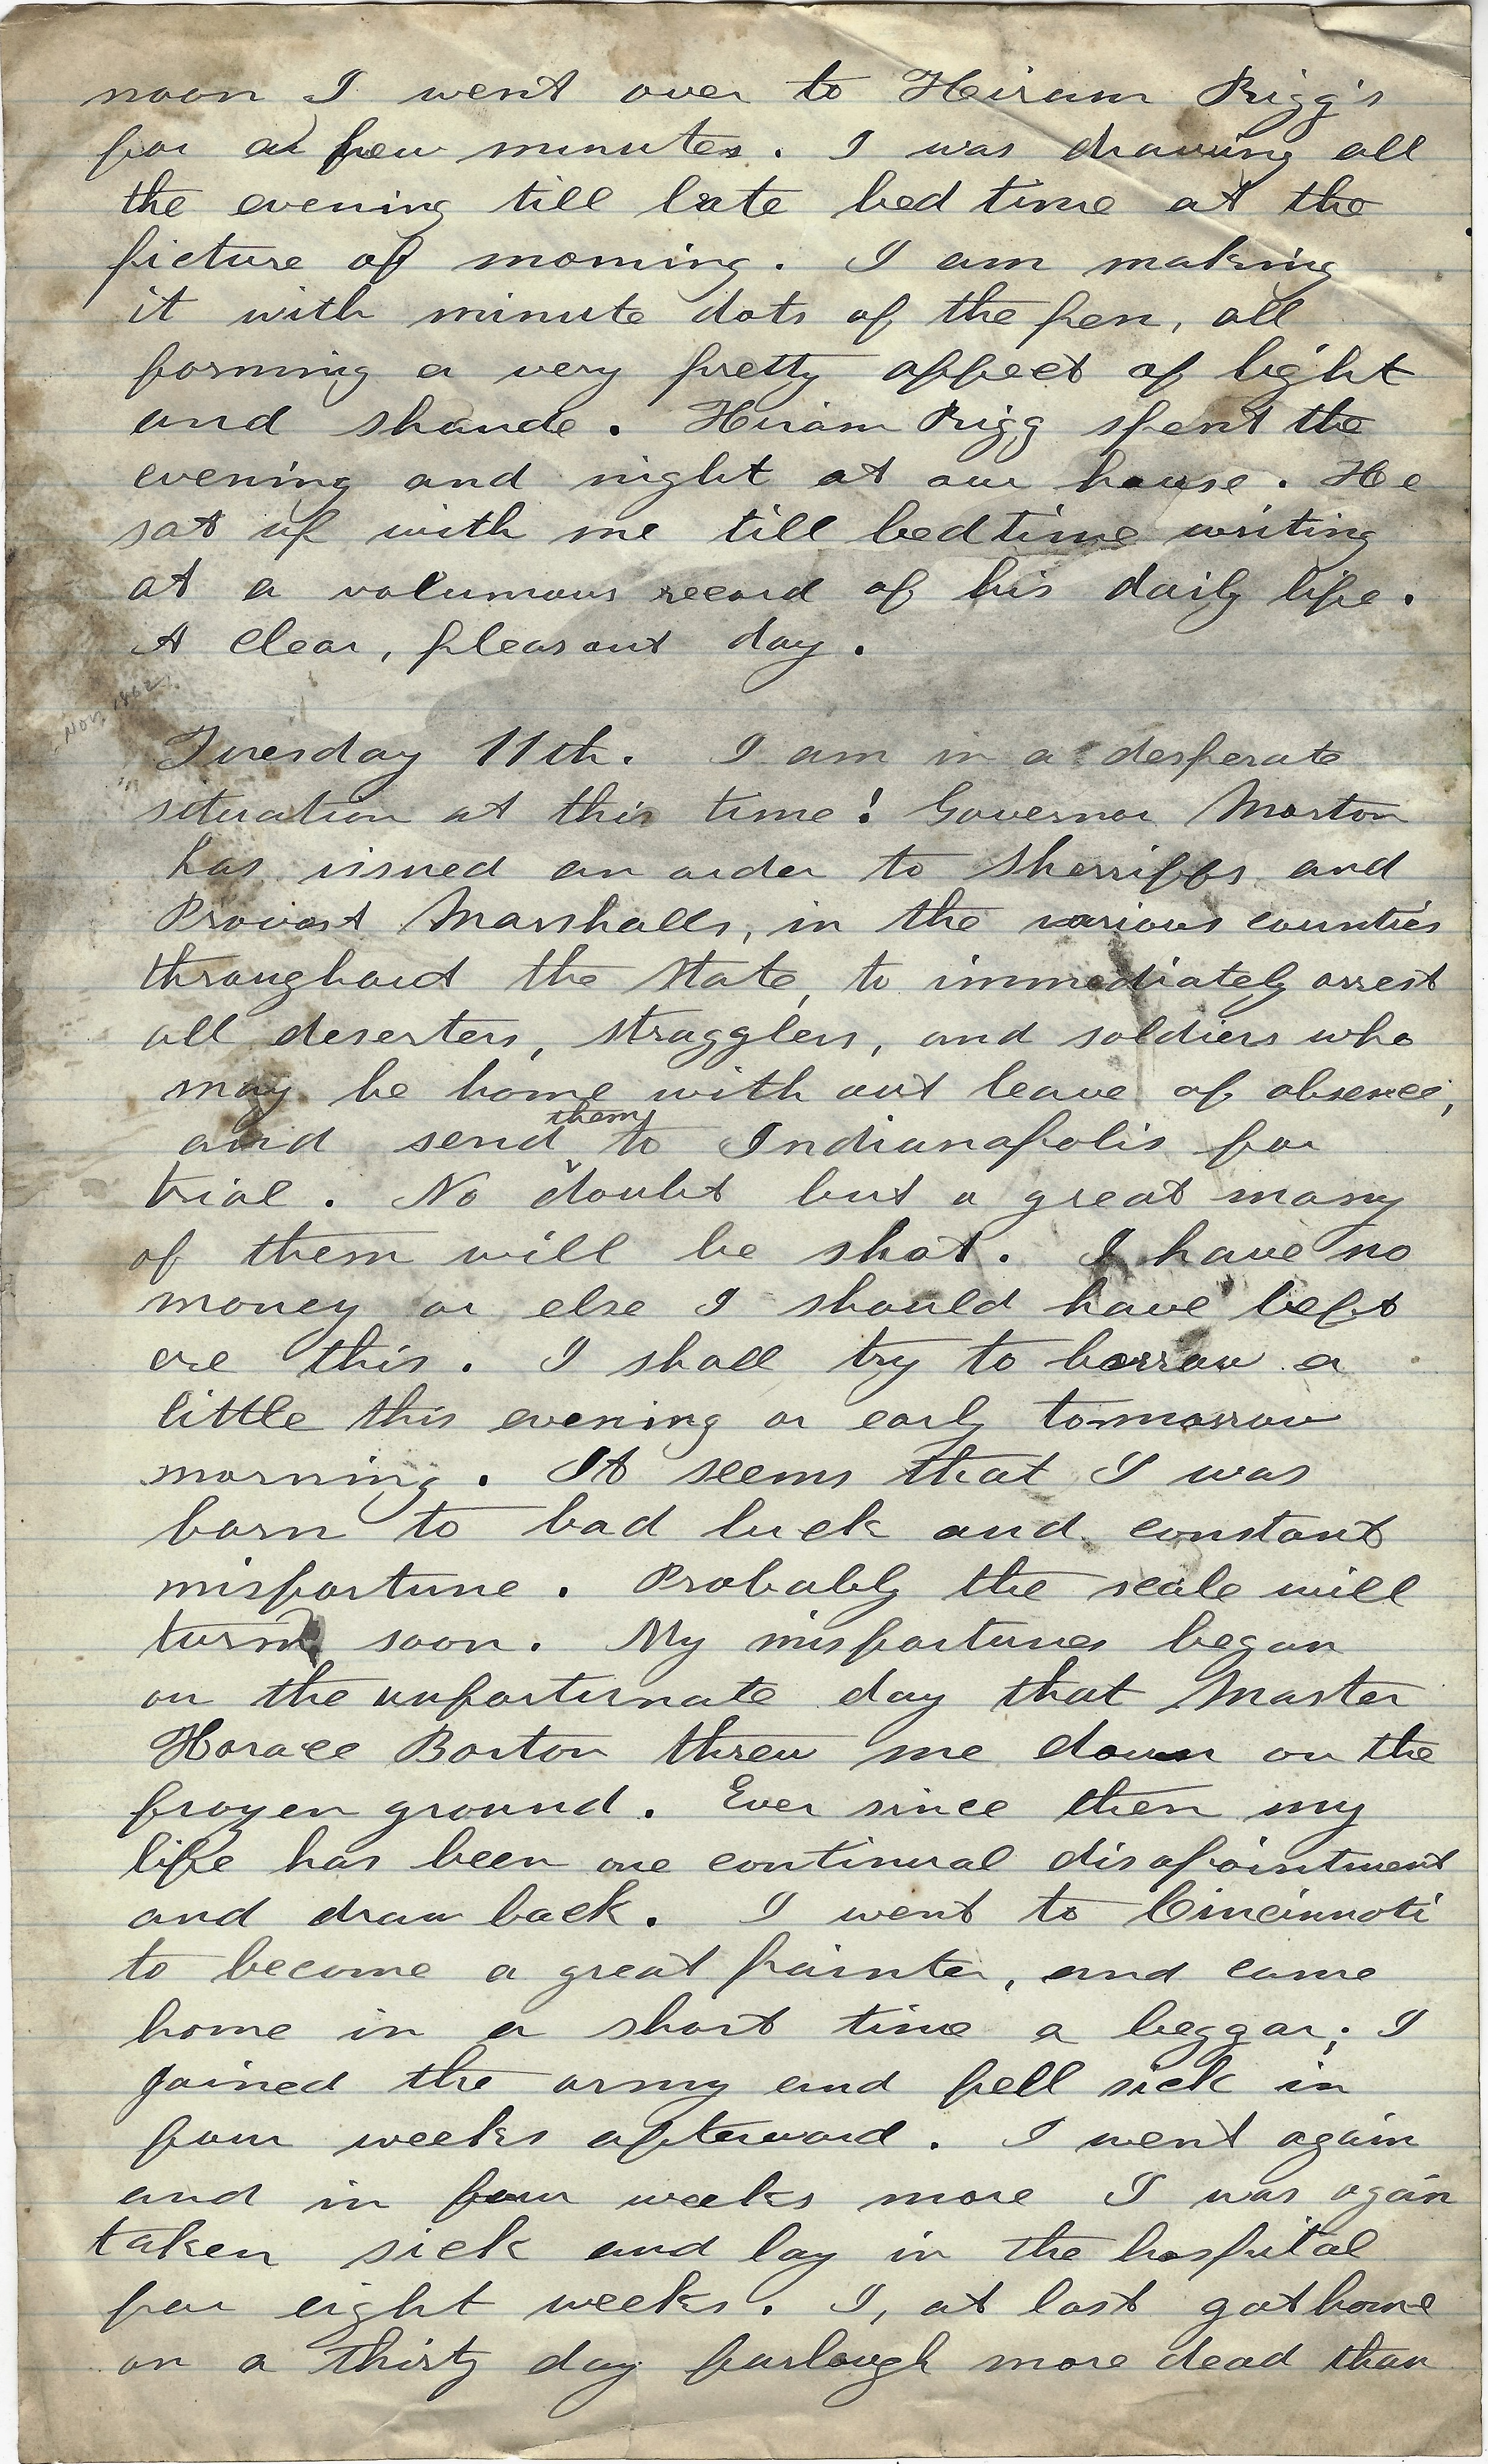 noon I went over to Hiram Rigg's
for a few minutes. I was drawing all
the evening till late bed time at the
picture of morning. I am making
it with minute dots of the pen, all
forming a very pretty affect of light
and shaude. Hiram Rigg spent the
evening and night at our house. He
sat up with me till bedtime writing
at a volumous record of his daily life.
A clear, pleasant day.
Nov. 1862
Tuesday 11th. I am in a desperate
situation at this time! Governor Morton
has issued an order to Sherriffs and
Provost Marshalls, in the various counties
throughout the State, to immediately arrest
all deserters, stragglers, and soldiers who
may be home with out leave of absence,
and send them to Indianapolis for
trial. No doubt but a great many
of them will be shot. I have no
money or else I should have left
ere this. I shall try to borrow a
little this evening or early tommorrow
morning. It seems that I was
born to bad luck and constant
misfortune. Probably the scale will
turn soon. My misfortunes began
on the unfortunate day that Master
Horace Borton threw me down on the
frozen ground. Ever since then my
life has been one continual disapointment
and draw back. I went to Cincinnati
to become a great painter, and came
home in a short time a beggar; I
joined the army and fell sick in
four weeks afterward. I went again
and in four weeks more I was again
taken sick and lay in the hospital
for eight weeks. I, at last got home
on a thirty day furlough more dead than